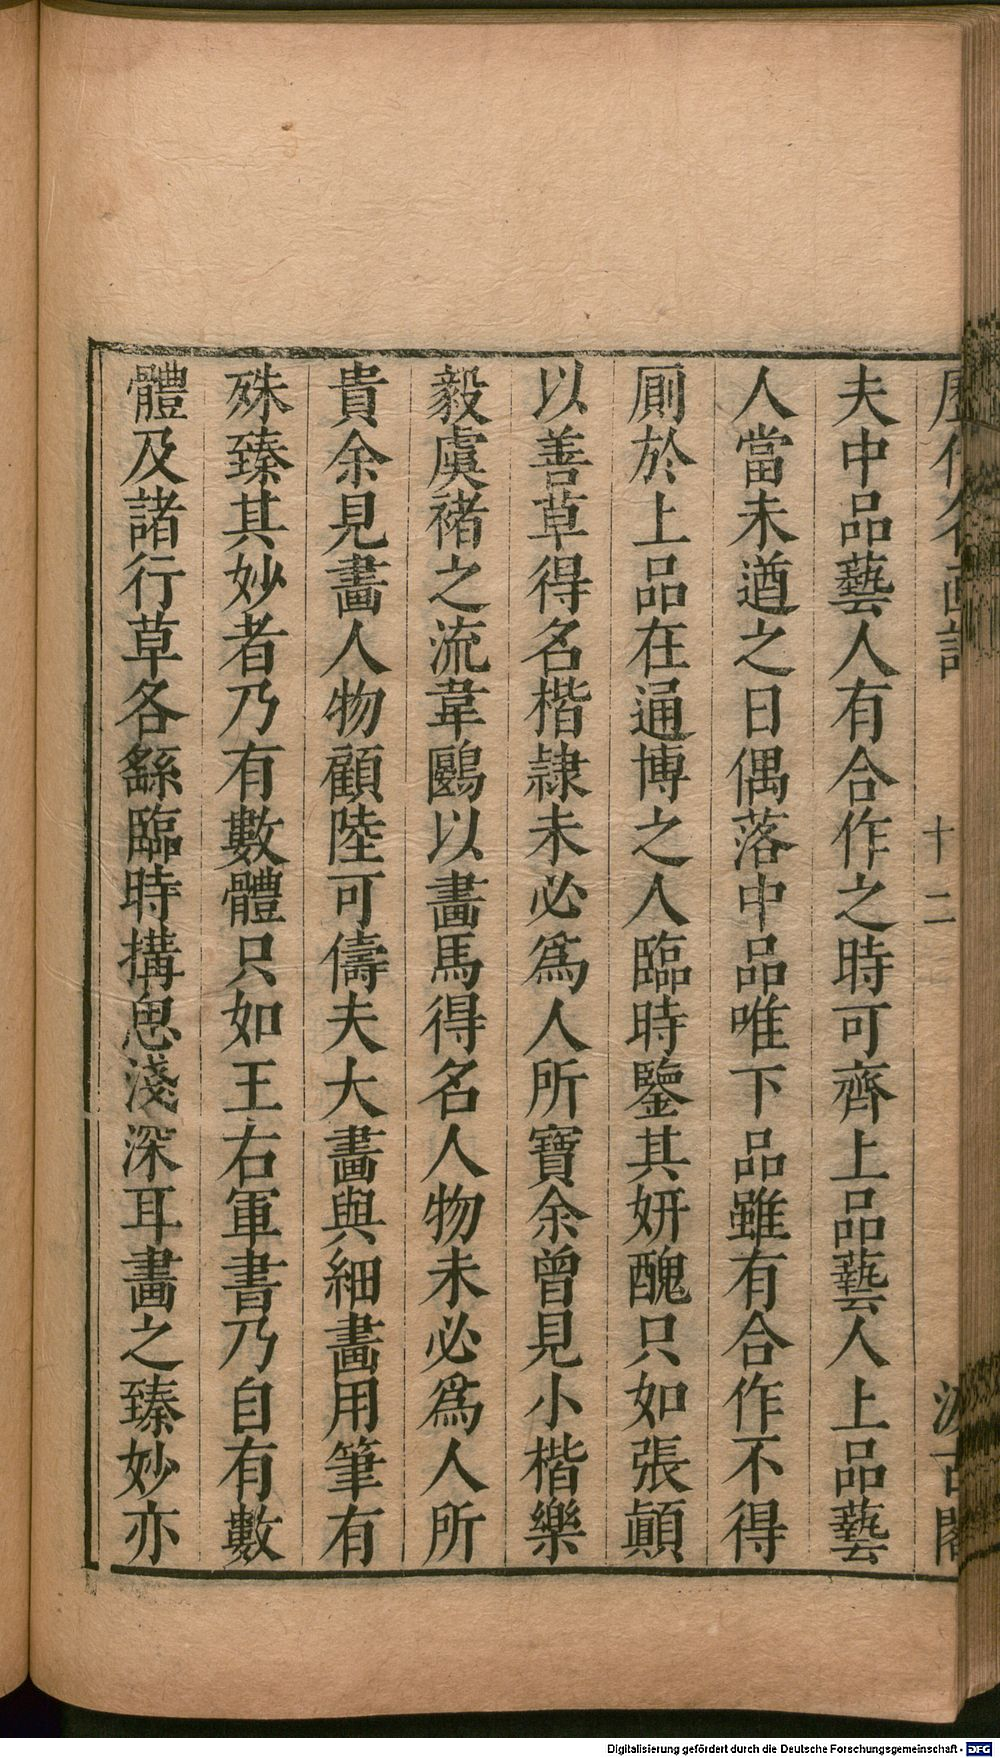 歷代名画記
十二
汲古閣
夫中品藝人有合作之時可齊上品藝人上品藝
人當未遒之日偶落中品唯下品雖有合作不得
厠於上品在通博之人臨時鑒其妍醜只如張顛
以善草得名楷隷未必爲人所寶余曾見小楷樂
毅虞褚之流韋鷗以畫馬得名人物未必爲人所
貴余見畫人物顧陸可儔夫大畫與細畫用筆有
殊臻其妙者乃有數體只如王右軍書乃自有數
體及諸行草各繇臨時搆思淺深耳畫之臻妙亦
Digitalisierung gefördert durch die Deutsche Forschungsgemeinschaft - DFG